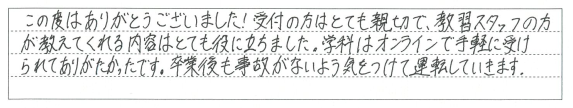 この度はありがとうございました!受付の方はとても親切で、教習スタッフの方
が教えてくれる内容はとても役に立ちました。学科はオンラインで手軽に受け
られてありがたかったです。卒業後も事故がないよう気をつけて運転していきます.